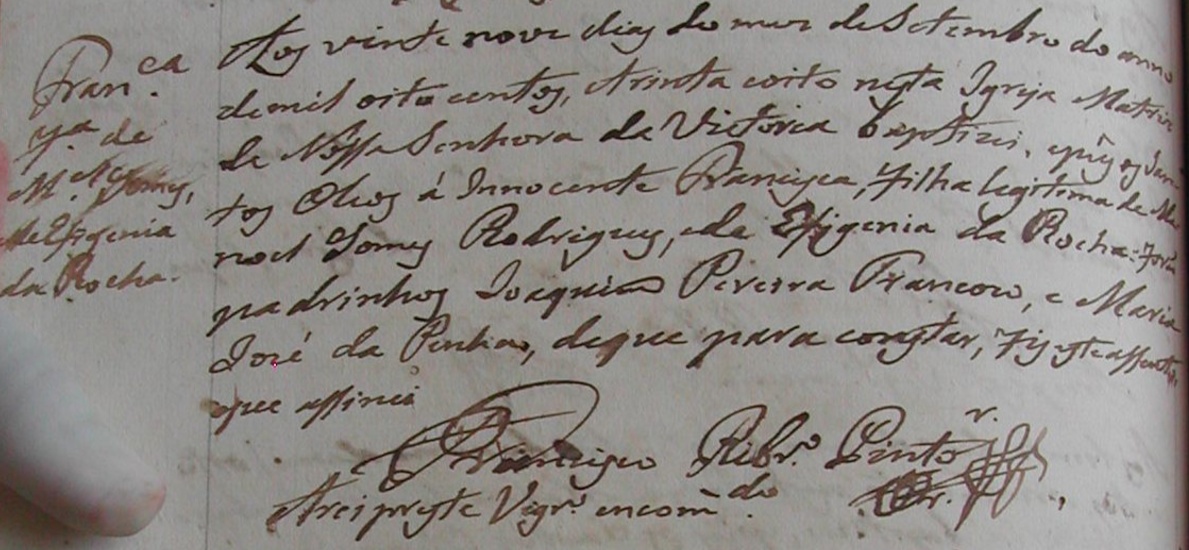 Fran.ca
f.a de
M.el Gomes,
e de Epigenia
da Rocha.
Aos vinte nove dias do mez de Setembro do anno
de mil oito centos, e trinta e oito nesta Igreja Matriz
de Nossa Senhora da Victoria baptizei, e puz os San-
tos Oleos á Innocente Francisca, filha legitima de Ma-
noel Gomes Rodrigues, e de Efigenia da Rocha: forão
padrinhos Joaquim Pereira Francom, e Maria
José da Penha, de que para constar, fiz este assento,
e que assinei
Francisco Ribr.o Pinto
Arcipreste Vigr.o encom.do